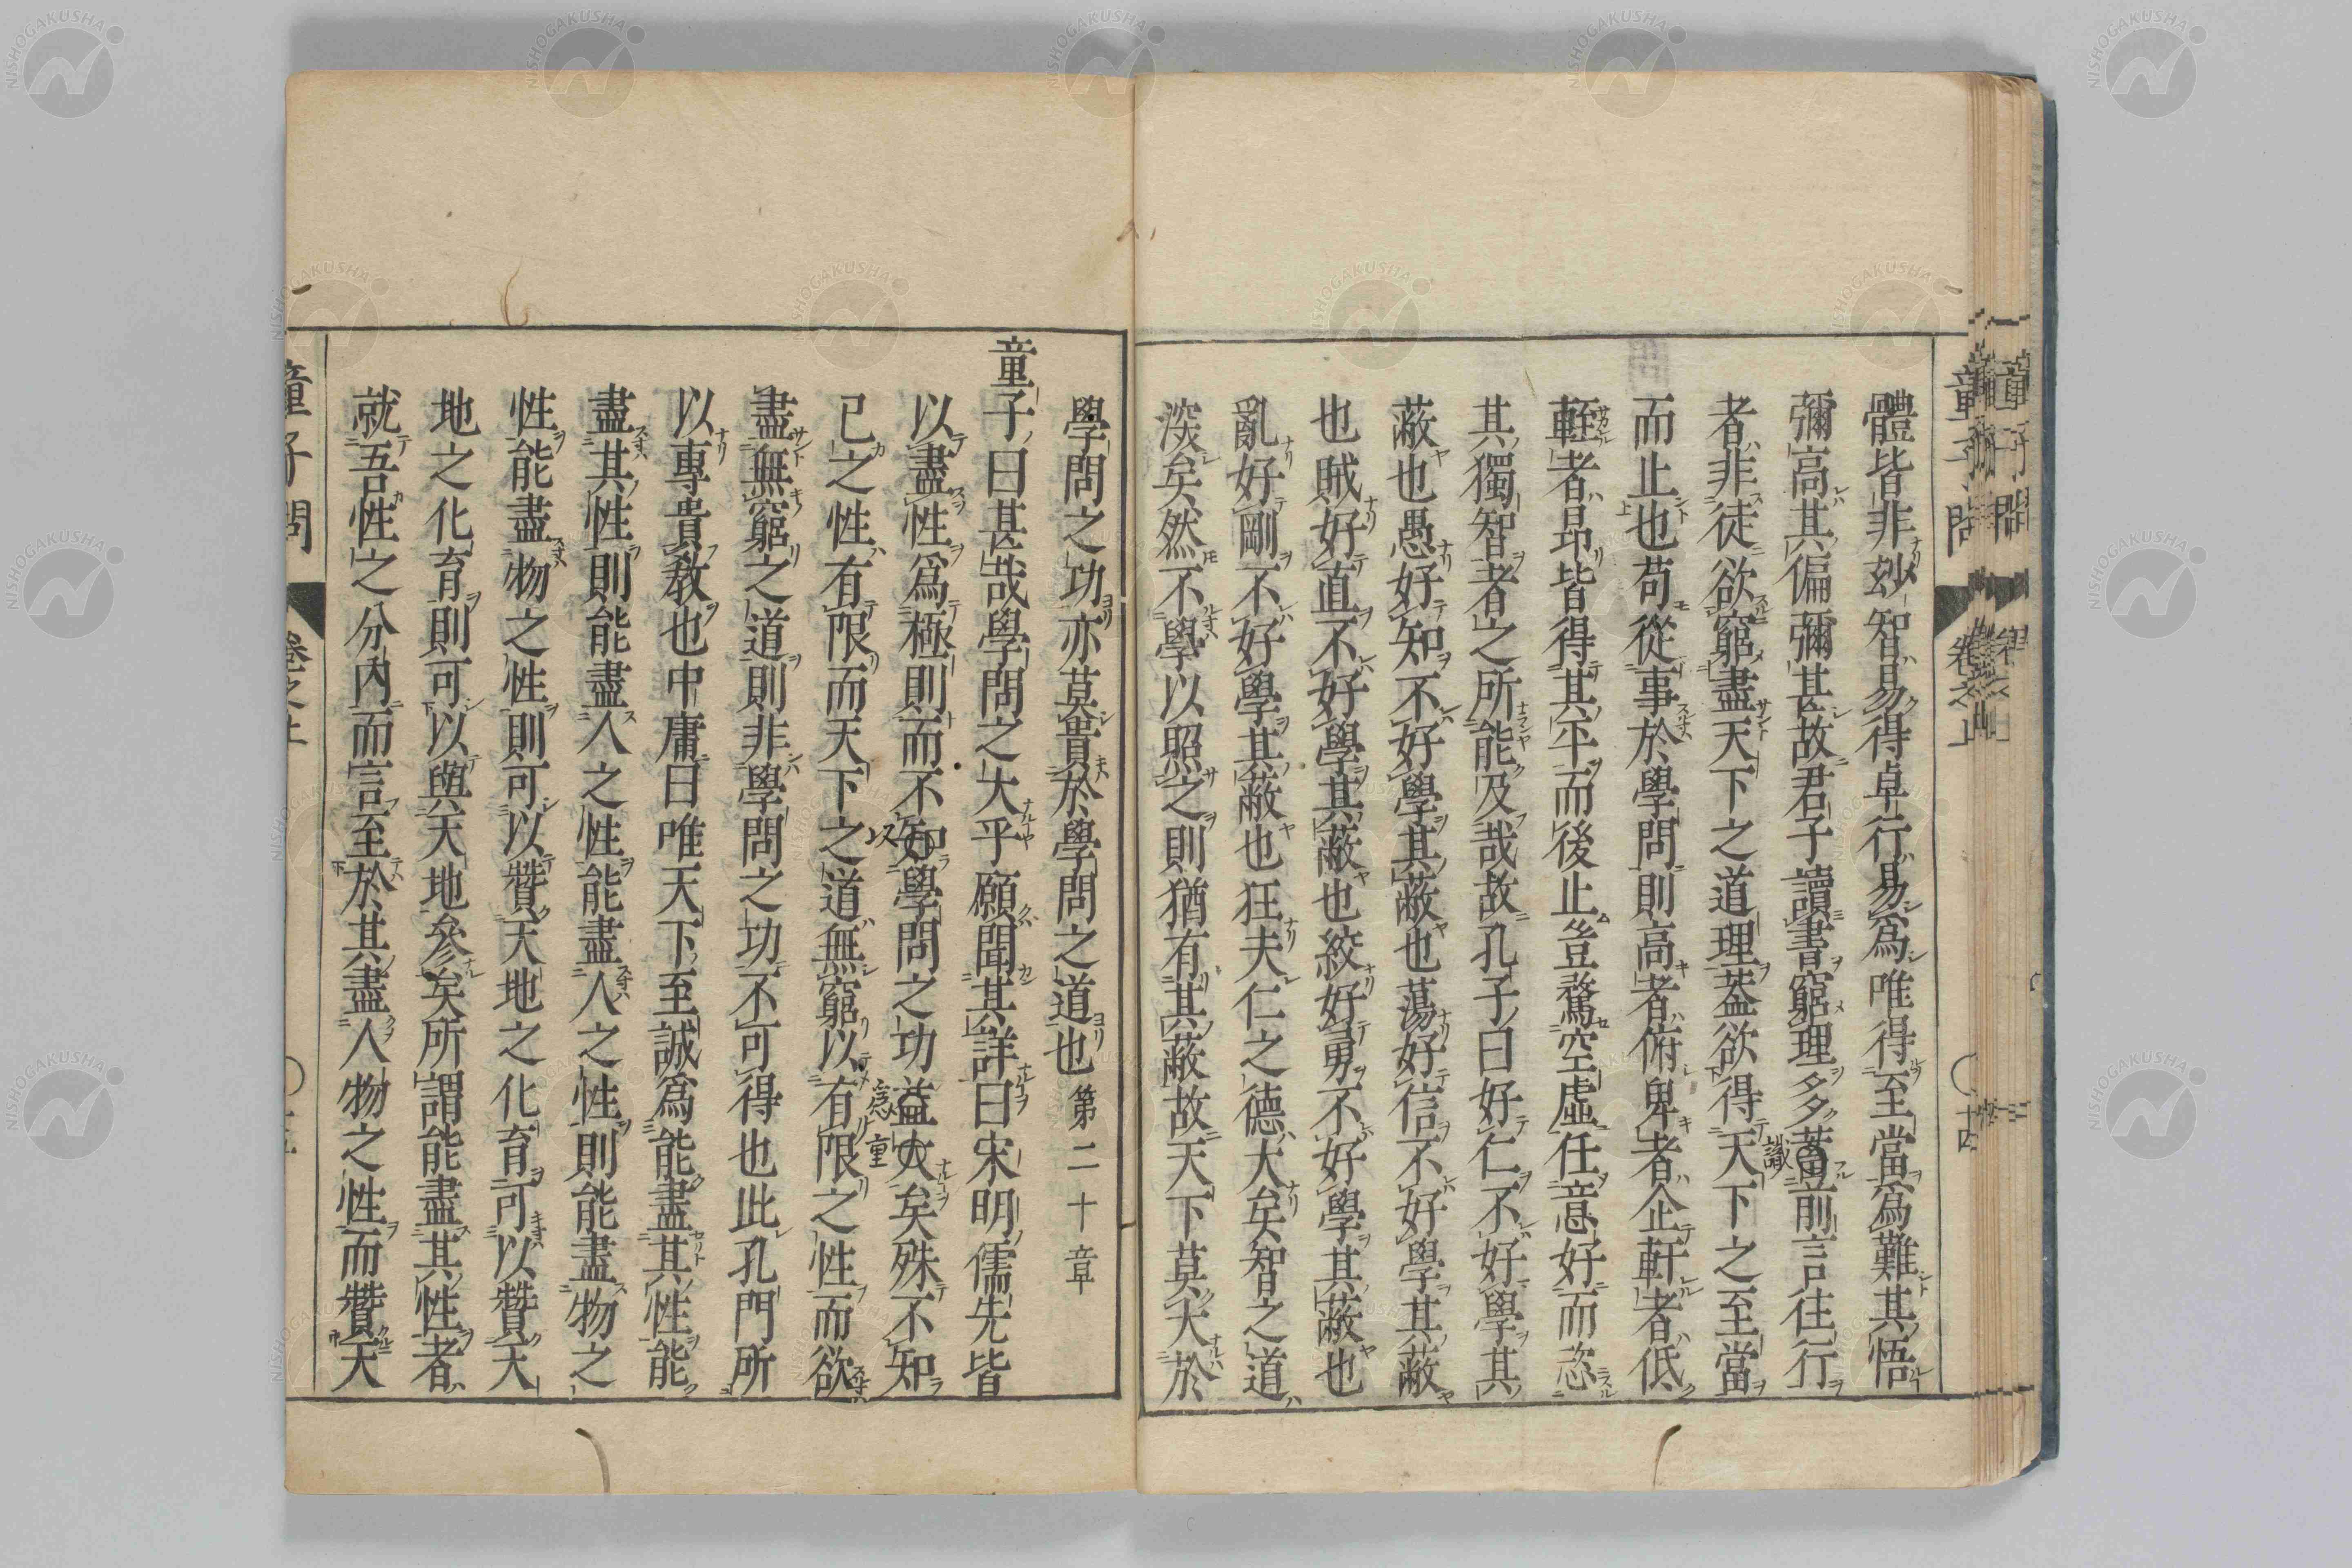 體皆非玅智易得卓行易爲唯得至當爲難其悟
彌高其偏彌甚故君子讀書窮理多蓄前言往行
識
者非徒欲窮盡天下之道理蓋欲得天下之至當
而止也苟從事於學問則高者俯卑者企軒者低
輊者昂皆得其平而後止豈騖空虛任意好而恣
其獨智者之所能及哉故孔子曰好仁不好學其
蔽也愚好知不好學其蔽也蕩好信不好學其蔽
也賊好直不好學其蔽也絞好勇不好學其蔽也
亂好剛不好學其蔽也狂夫仁之德大矣智之道
淡矣然不學以照之則猶有其蔽故天下莫大於
童子問
卷之上
十四
學問之功亦莫貴於學問之道也 第二十章
童子曰甚哉學問之大乎願聞其詳曰宋明儒先皆
以盡性爲極則而不知學問之功益大矣殊不知
已之性有限而天下之道無窮以有限之性而欲
盡無窮之道則非學問之功不可得也此孔門所
以專貴敎也中庸曰唯天下至誠爲能盡其性能
盡其性則能盡人之性能盡人之性則能盡物之
性能盡物之性則可以贊天地之化育可以贊天
地之化育則可以與天地參矣所謂能盡其性者
就吾性之分內而言至於其盡人物之性而贊天
童子問
卷之上
NISHOGAKUSHA